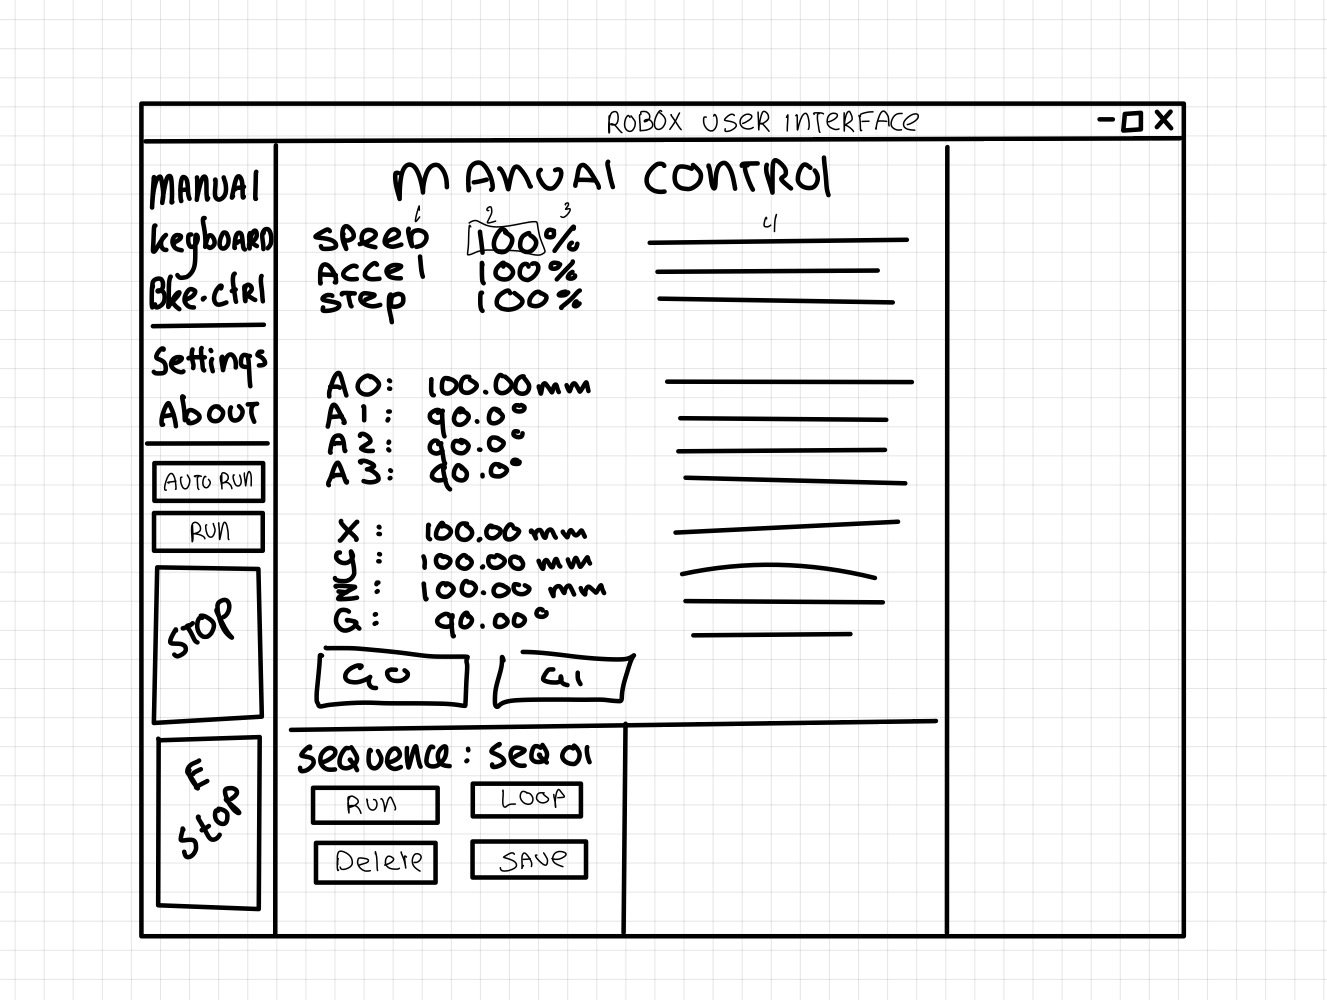 ROBOX USER INTERFACE
MANUAL
keyboARD
Bke.ctrl
Settings
About
AUTO RUN
RUN
STOP
E
StOP
MANUAl CONTROl
1 2 3 4
SPeeD 100%
Accel 100%
step 100%
A0: 100.00mm
A1: 90.0°
A2: 90.0°
A3: 90.0°
X: 100.00 mm
Y: 100.00 mm
Z: 100.00 mm
G: 90.00°
G0
G1
seQuence: seQ 01
RUN
LOOP
Delete
SAVe